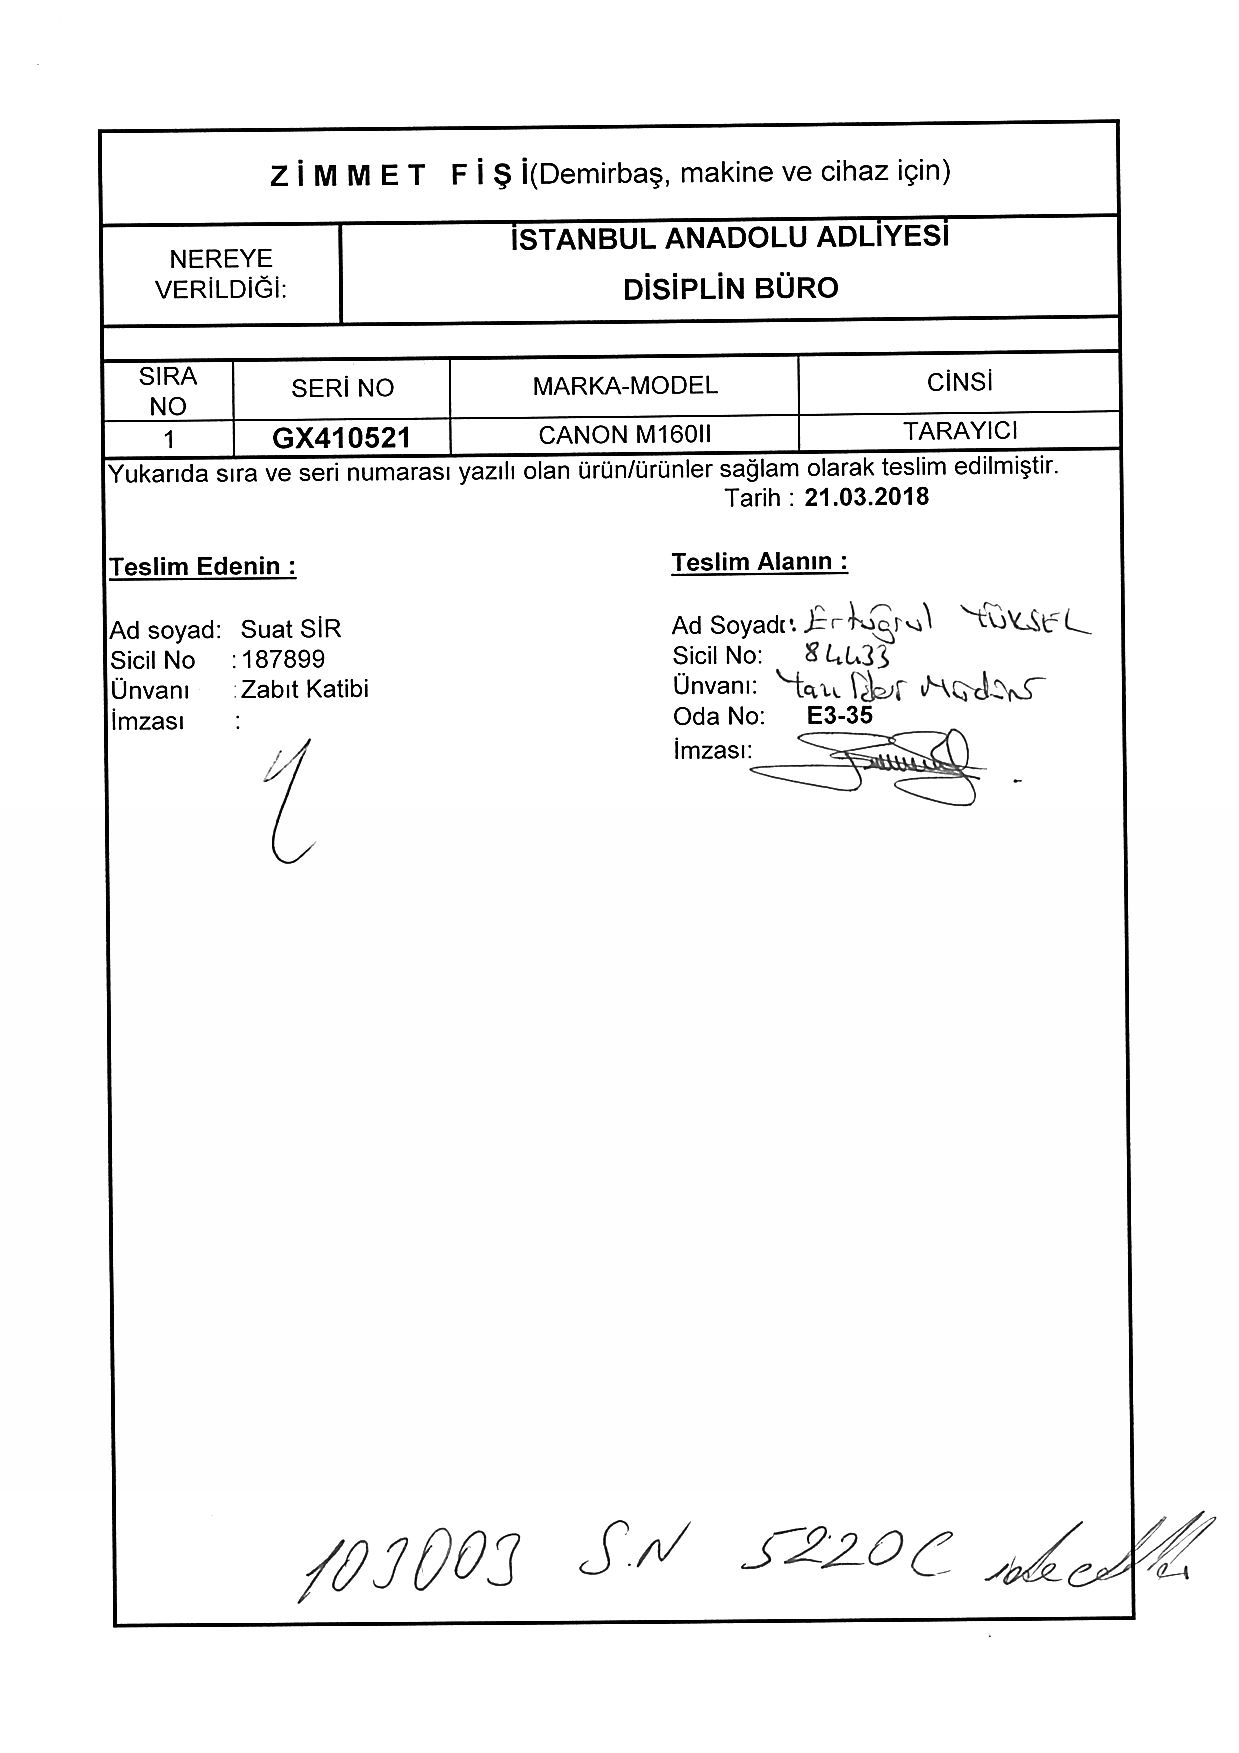 ZİMMET FİŞİ(Demirbaş, makine ve cihaz için)
NEREYE VERİLDİĞİ:
İSTANBUL ANADOLU ADLİYESİ
DİSİPLİN BÜRO
SIRA NO SERİ NO MARKA-MODEL CİNSİ
1 GX410521 CANON M160II TARAYICI
Yukarıda sıra ve seri numarası yazılı olan ürün/ürünler sağlam olarak teslim edilmiştir.
Tarih : 21.03.2018
Teslim Edenin :
Ad soyad: Suat SİR
Sicil No :187899
Ünvanı :Zabıt Katibi
İmzası :
Teslim Alanın :
Ad Soyadı: Ertuğrul YÜKSEL
Sicil No: 84433
Ünvanı: Yazı İşler Müdürü
Oda No: E3-35
İmzası:
103003 S.N 5220C